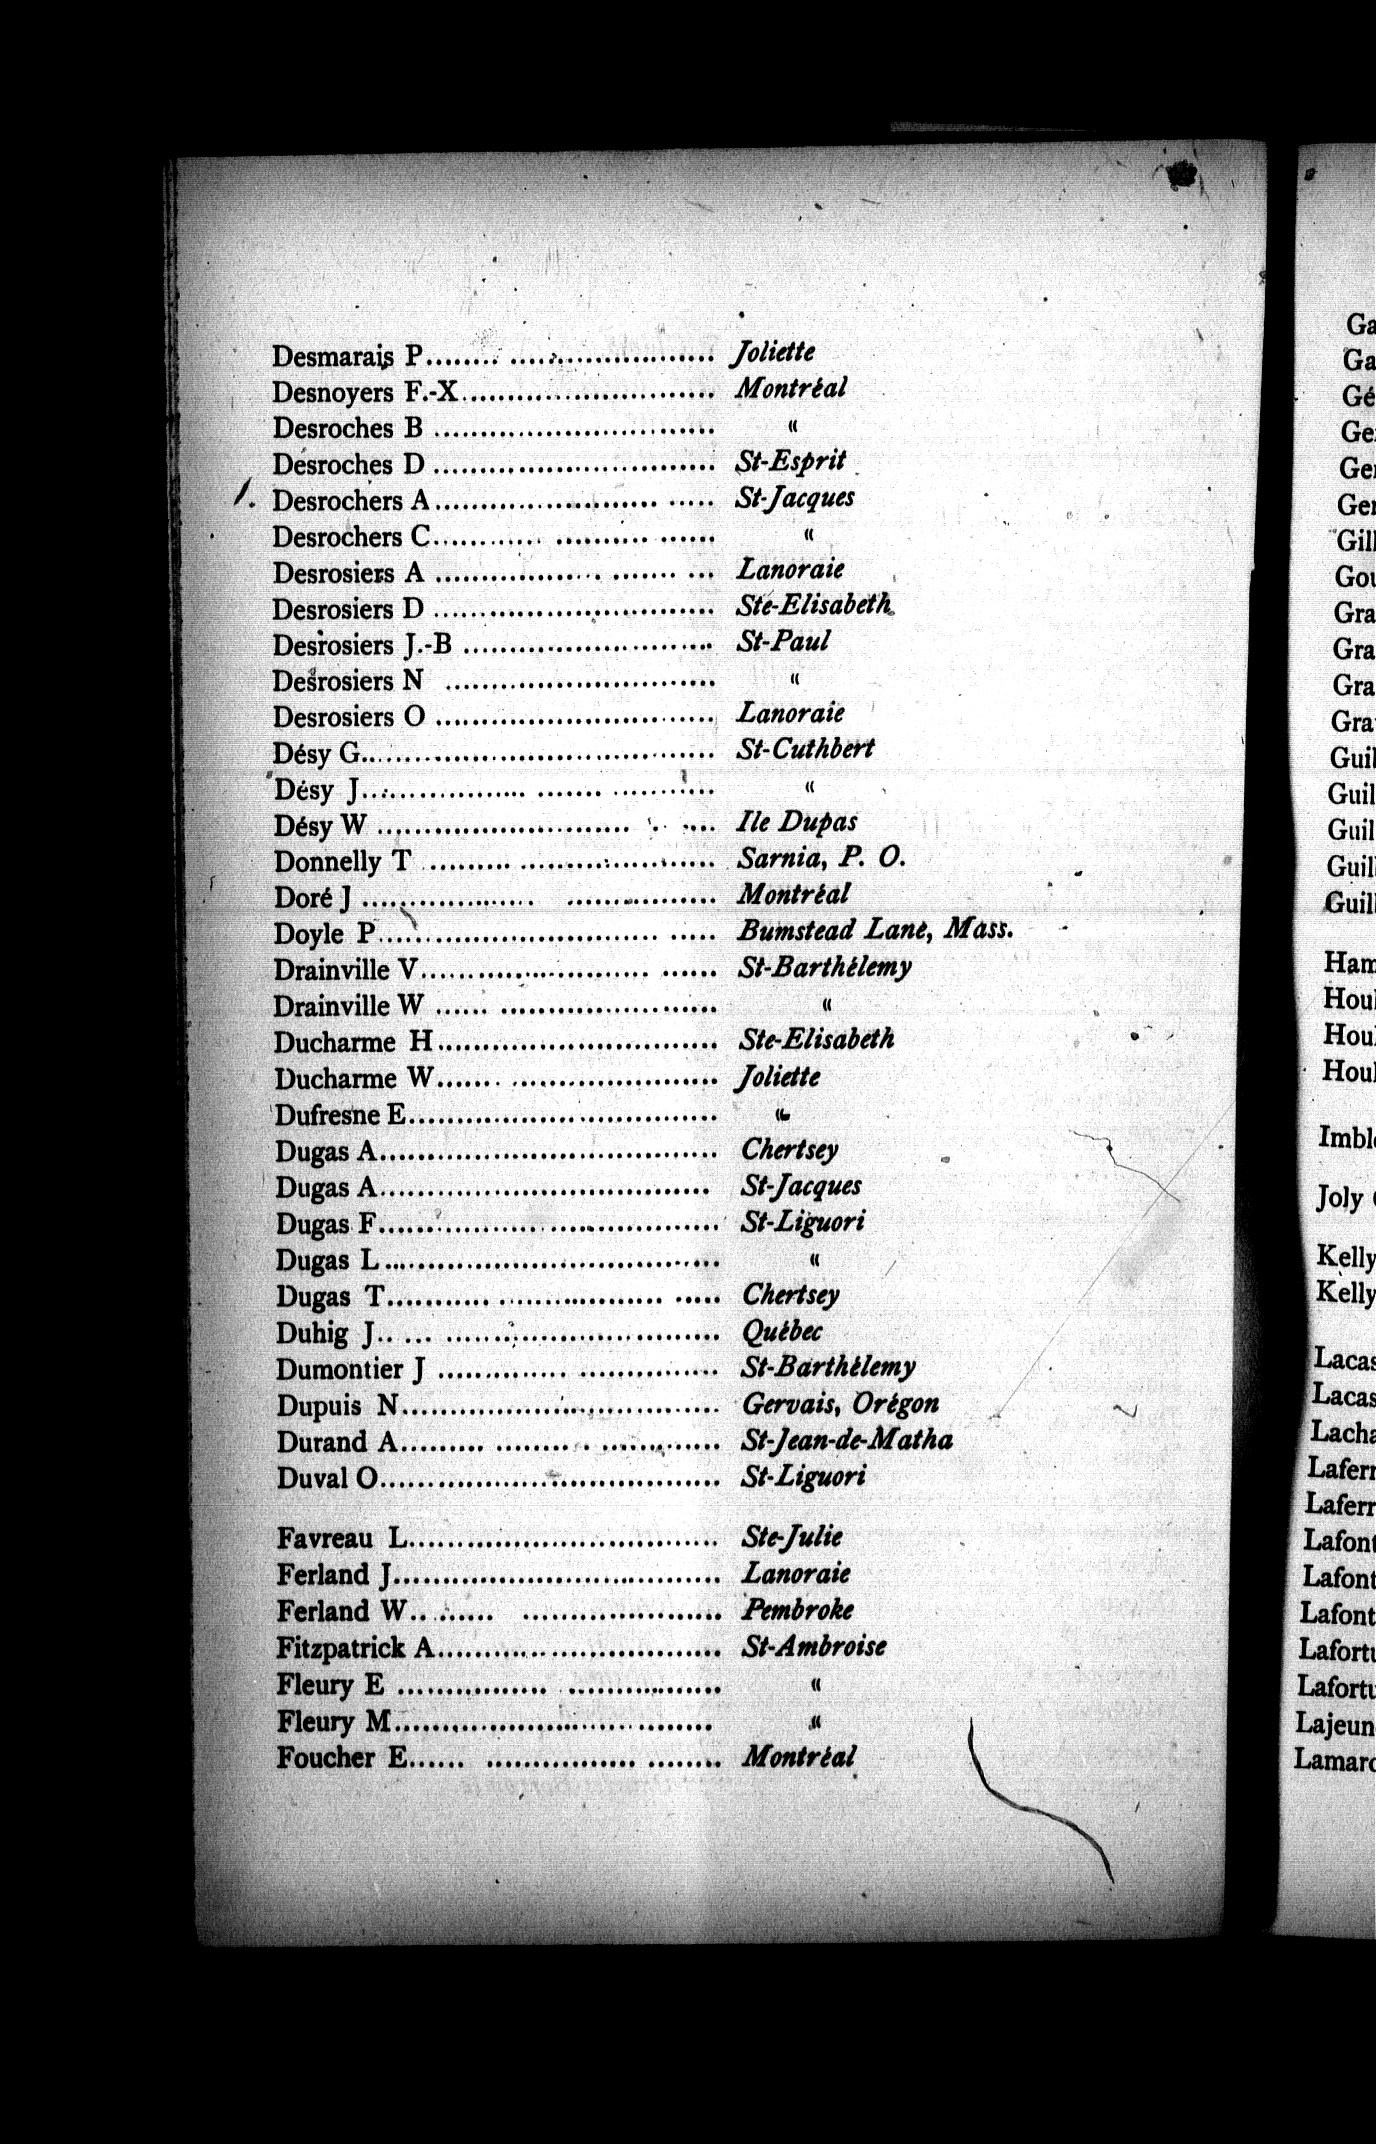 Desmarais P........ ........................ Joliette
Desnoyers F.-X............................ Montréal
Desroches B ............................... "
Desroches D ............................... St-Esprit
Desrochers A......................... ..... St-Jacques
Desrochers C............ .......... ...... "
Desrosiers A .................. ....... ... Lanoraie
Desrosiers D ............................... Ste-Elisabeth
Desrosiers J.-B ............................ St-Paul
Desrosiers N .............................. "
Desrosiers O ............................... Lanoraie
Désy G....................................... St-Cuthbert
Désy J.................. ....... ........... "
Désy W ............................ .... Ile Dupas
Donnelly T ......... ...................... Sarnia, P. O.
Doré J ................... ................. Montréal
Doyle P............................... ..... Bumstead Lane, Mass.
Drainville V.......................... ...... St-Barthélemy
Drainville W ...... ........................ "
Ducharme H............................... Ste-Elisabeth
Ducharme W....... ....................... Joliette
Dufresne E.................................. "
Dugas A..................................... Chertsey
Dugas A.................................... St-Jacques
Dugas F..................................... St-Liguori
Dugas L..................................... "
Dugas T........... .................. ..... Chertsey
Duhig J.. ... .............................. Québec
Dumontier J .............. ............... St-Barthélemy
Dupuis N................................... Gervais, Orégon
Durand A......... ........ . ............. St-Jean-de-Matha
Duval O..................................... St-Liguori
Favreau L.................................. Ste-Julie
Ferland J.................................... Lanoraie
Ferland W.. ...... ...................... Pembroke
Fitzpatrick A............................... St-Ambroise
Fleury E ................ ................. "
Fleury M........................... ........ "
Foucher E...... .................. ........ Montréal
Ga
Ga
Gé
Ge
Ge
Ger
Gill
Gou
Gra
Gra
Gra
Gra
Guil
Guil
Guil
Guil
Guil
Ham
Houl
Hou
Houl
Imbl
Joly
Kelly
Kelly
Lacas
Lacas
Lacha
Laferr
Laferr
Lafont
Lafont
Lafont
Lafortu
Lafortu
Lajeun
Lamarc